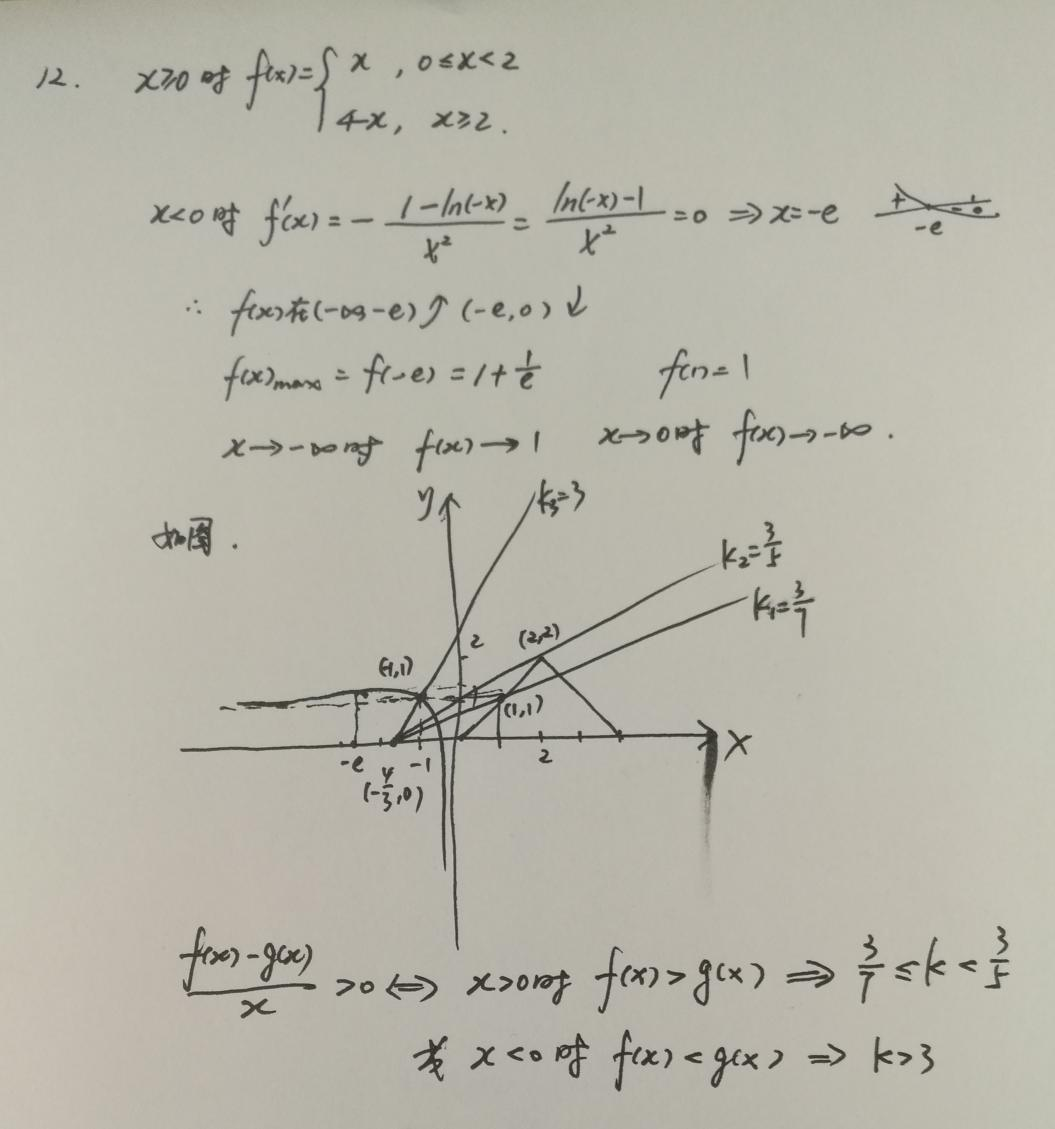 12. x≥0时 f(x)={x , 0≤x<2
4-x, x≥2.
x<0时 f'(x)=-(1-ln(-x))/x²=(ln(-x)-1)/x²=0 ⇒x=-e + - 0 -e
∴ f(x)在(-∞-e)↑(-e,0)↓
f(x)max=f(-e)=1+1/e f(-1)=1
x→-∞时 f(x)→1 x→0时 f(x)→-∞.
如图.
y k₃=3
k₂=3/5
k₁=3/7
2 (2,2)
(-1,1)
(1,1)
-e -1 2 x
(-4/3,0)
(f(x)-g(x))/x>0⇔ x>0时 f(x)>g(x) ⇒ 3/7≤k<3/5
或 x<0时 f(x)<g(x) ⇒ k>3